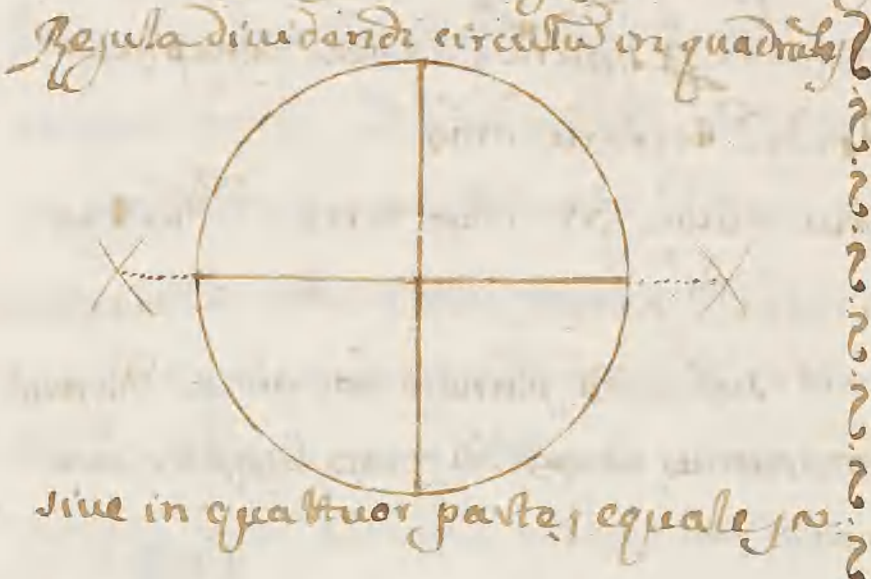 Regula diuidendi circulũ in quadrãtes
siue in quattuor partes equales